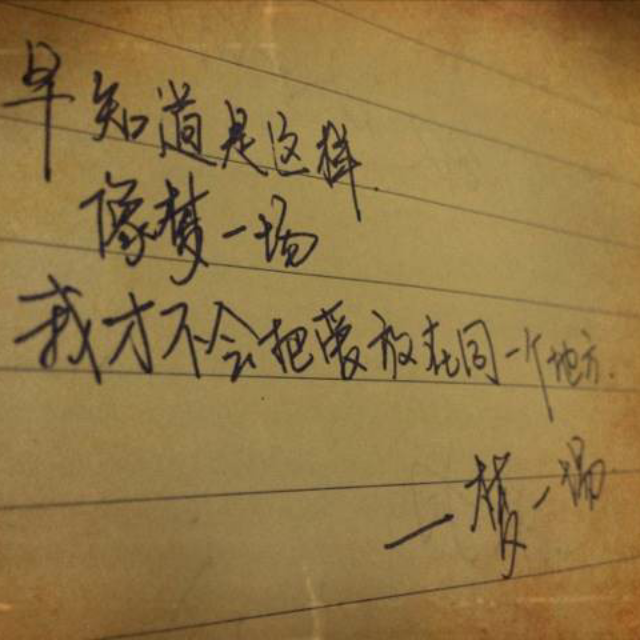 早知道是这样
像梦一场
我才不会把爱放在同一个地方
—梦一场